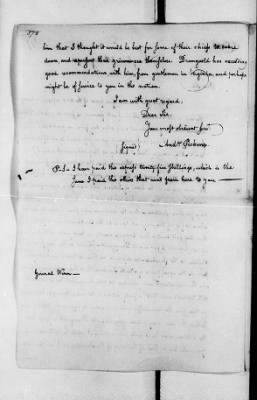 him that I thought it would be best for some of their chiefs to come
down, and represent their grievances themselves. Drumgoold has excellent
good recommendations with him, from gentlemen in Virginia, and perhaps
might be of service to you in the nation.
I am with great regard.
Dear Sir.
Your most obedient Serv.t
(signed) And.w Pickens
P.S. I have paid the express twenty five Shillings, which is the
Same I paid the others that went from here to you
General Winn